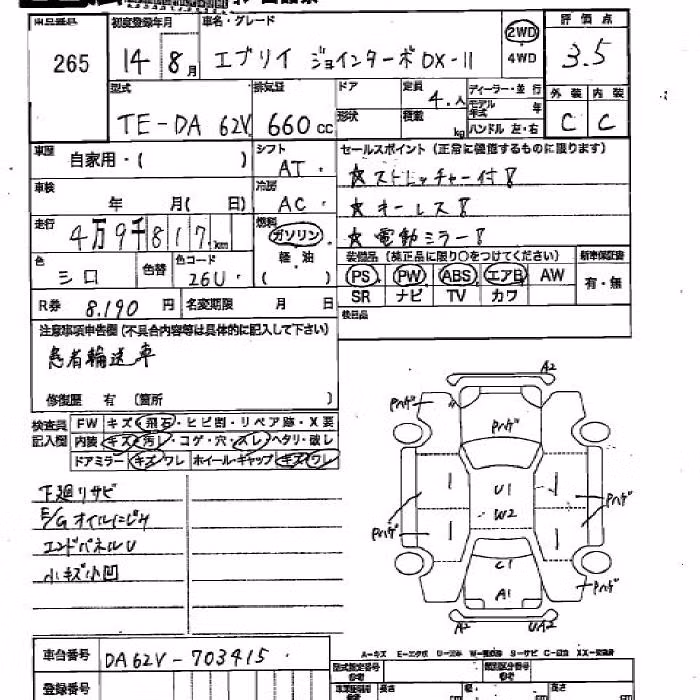 出品番号 265
初度登録年月 14 8月
車名・グレード エブリイ ジョインターボ DX-II
2WD
4WD
評価点 3.5
外装 C 内装 C
型式 TE-DA62V
排気量 660cc
ドア
形状
定員 4.人
積載 kg
ディーラー・並行
モデル年式 年
ハンドル 左・右
車歴 自家用・( )
シフト AT
セールスポイント (正常に機能するものに限ります)
☆ストレッチャー付!
☆キーレス!
☆電動ミラー!
車検 年 月( 日)
冷房 AC
走行 4万9千817km
燃料 ガソリン
軽・油
( )
色 シロ 色替 色コード 26U
装備品 (純正品に限り○をつけてください)
PS PW ABS エアB AW
SR ナビ TV カワ
新車保証書
有・無
R券 8.190円 名変期限 月 日
検目品
注意事項申告欄 (不具合内容等は具体的に記入して下さい)
患者輸送車
修復歴 有 (箇所 )
検査員記入欄
FW キズ・飛石・ヒビ割・リペア跡・X要
内装 キズ・汚レ・コゲ・穴・スレ・ヘタリ・破レ
ドアミラー キズ・ワレ ホイール・キャップ キズ・ワレ
下廻りサビ
E/Gオイルにじみ
エンドパネルU
小キズ小凹
A2
Pハゲ
Pハゲ
U1
W2
Pハゲ
Pハゲ
C1
A1
Pハゲ
A2
UA2
A=キズ E=エクボ U=凹 W=補修跡 S=サビ C=腐食 XX=交換済
車台番号 DA62V-703415
登録番号
型式指定番号
類別区分番号
長さ cm 幅 cm 高さ cm